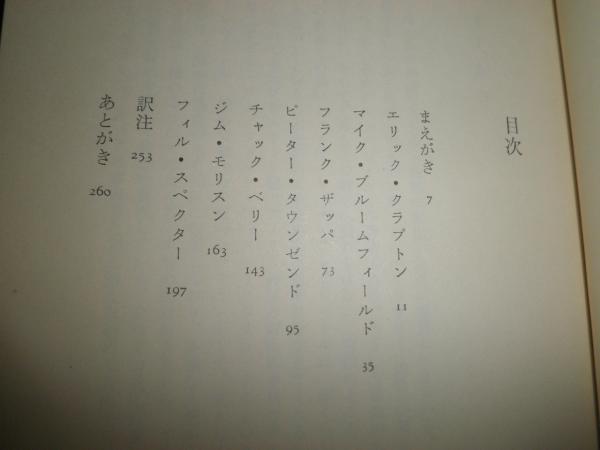 目次
まえがき 7
エリック・クラプトン 11
マイク・ブルームフィールド 35
フランク・ザッパ 73
ピーター・タウンゼンド 95
チャック・ベリー 143
ジム・モリスン 163
フィル・スペクター 197
訳注 253
あとがき 260